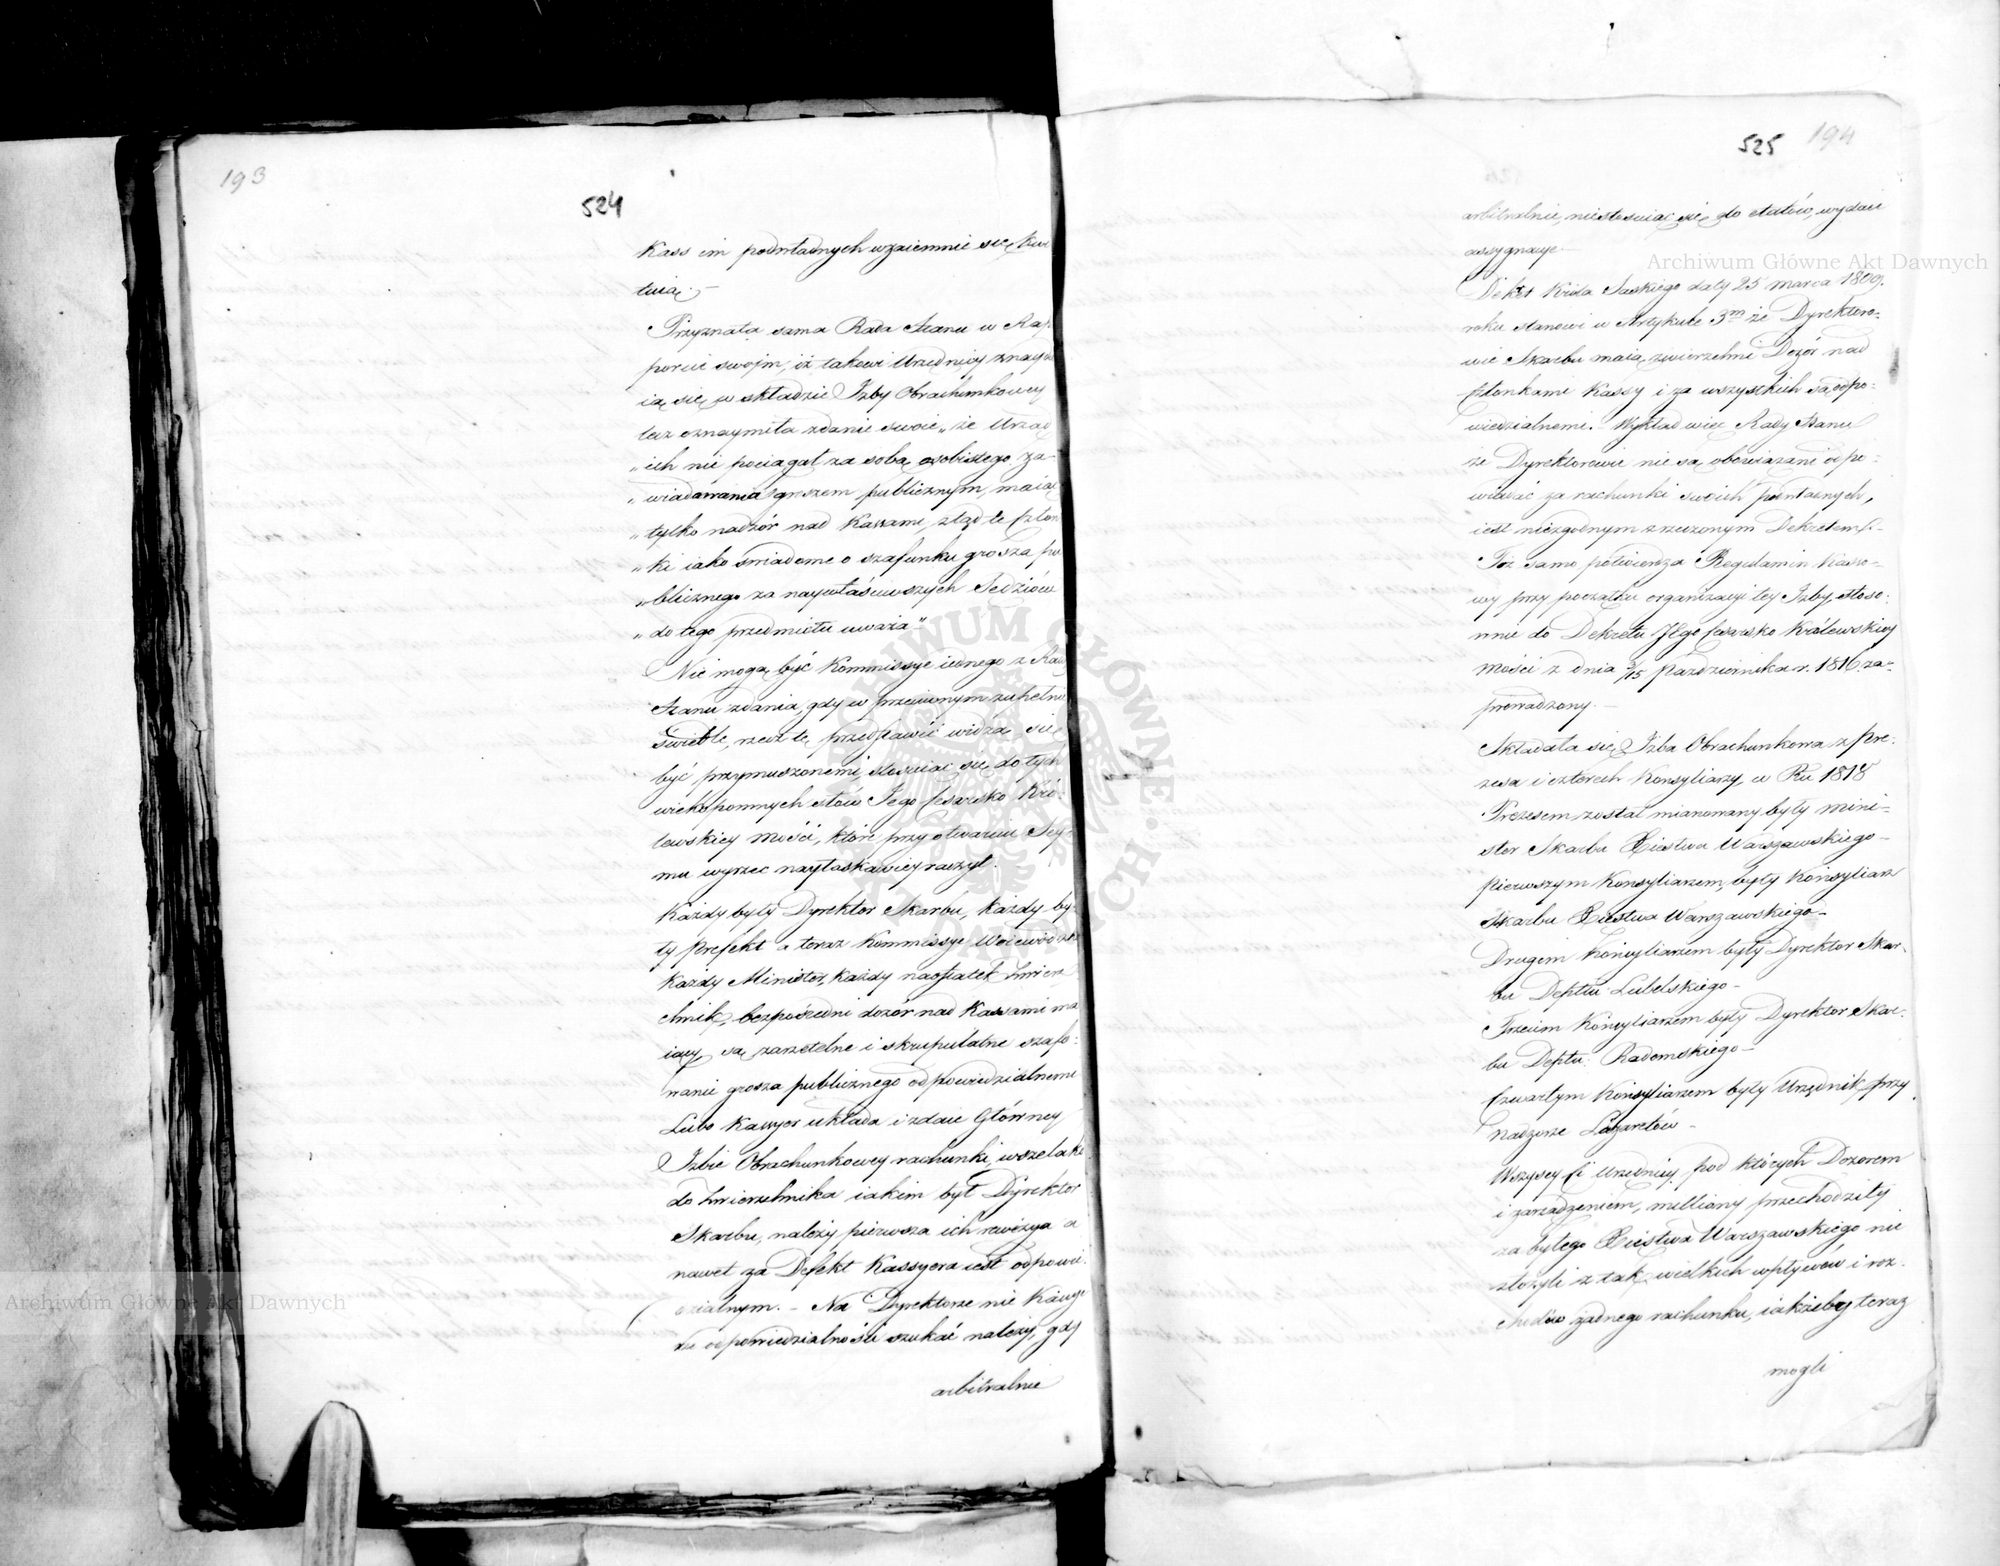 193
524
Kass im podwładnych wzaiemnie się kwi
tuią. –
Przyznała sama Rada Stanu w Rap
porcie swoim, iż takowi Urzędnicy znayd
ią się w składzie Izby Obrachunkowey
lecz oznaymiła zdanie swoie „że Urząd
„ich nie pociągał za sobą osobistego za-
„wiadowania groszem publicznym, maiąc
„tylko nadzór nad Kassami, ztąd te Człon
„ki iako świadome o szafunku grosza pu
„blicznego za naywłaściwszych Sędziów
„do tego przedmiotu uważa"
Nie mogą być Kommissye iednego z Radą
Stanu zdania, gdy w przeciwnym zupełnie
świetle, rzecz tę przedstawić widzą się
być przymuszonemi, stosuiąc się do tych
wiekopomnych słów Jego Cesarsko Kró-
lewskiey Mości, które przy otwarciu Sey-
mu wyrzec nayłaskawiey raczył.
Każdy były Dyrektor Skarbu, każdy by-
ły Prefekt a teraz Kommissye Woiewódzkie
Każdy Minister, każdy naostatek Zwierz
chnik, bezpośredni dozór nad Kassami ma
iący, są za rzetelne i skrupulatne szafo-
wanie grosza publicznego odpowiedzialnemi
Lubo Kassyer układa i zdaie Główney
Izbie Obrachunkowey rachunki, wszelako
do Zwierzchnika iakim był Dyrektor
Skarbu, należy pierwsza ich rewizya a
nawet za Defekt Kassyera iest odpowie-
dzialnym. – Na Dyrektorze nie Kassye
rze odpowiedzialności szukać należy, gdy
arbitralnie
525 194
arbitralnie, niestosuiąc się do etatów, wydaie
assygnacye
Dekret Króla Saskiego daty 25 marca 1809.
roku stanowi w Artykule 3m że Dyrektoro-
wie Skarbu maią zwierzchni Dozór nad
Członkami Kassy i za wszystkich są odpo-
wiedzialnemi. Wykład więc Rady Stanu
że Dyrektorowie nie są obowiązani odpo-
wiadać za rachunki swoich podwładnych,
iest niezgodnym z rzeczonym Dekretem. –
Toż samo potwierdza Regulamin Kasso-
wy przy początku organizacyi tey Izby, stoso-
wnie do Dekretu JEgo Cesarsko Królewskiey
Mości z dnia 3/15 Października r. 1816. za-
prowadzony. –
Składała się Izba Obrachunkowa z Pre-
zesa i czterech Konsyliarzy, w Ru 1818
Prezesem został mianowany były Mini-
ster Skarbu Xięstwa Warszawskiego –
Pierwszym Konsyliarzem, były Konsyliarz
Skarbu Xięstwa Warszawskiego –
Drugim Konsyliarzem były Dyrektor Skar-
bu Deptu Lubelskiego –
Trzecim Konsyliarzem były Dyrektor Skar-
bu Deptu: Radomskiego –
Czwartym Konsyliarzem były Urzędnik przy
nadzorze Lazaretów –
Wszyscy Ci Urzędnicy, pod których Dozorem
i zarządzeniem, milliony przechodziły
za byłego Xięstwa Warszawskiego nie
złożyli z tak wielkich wpływów i roz-
chodów żadnego rachunku, iakżeby teraz
mogli
Archiwum Główne Akt Dawnych
Archiwum Główne Akt Dawnych
ARCHIWUM GŁÓWNE AKT DAWNYCH